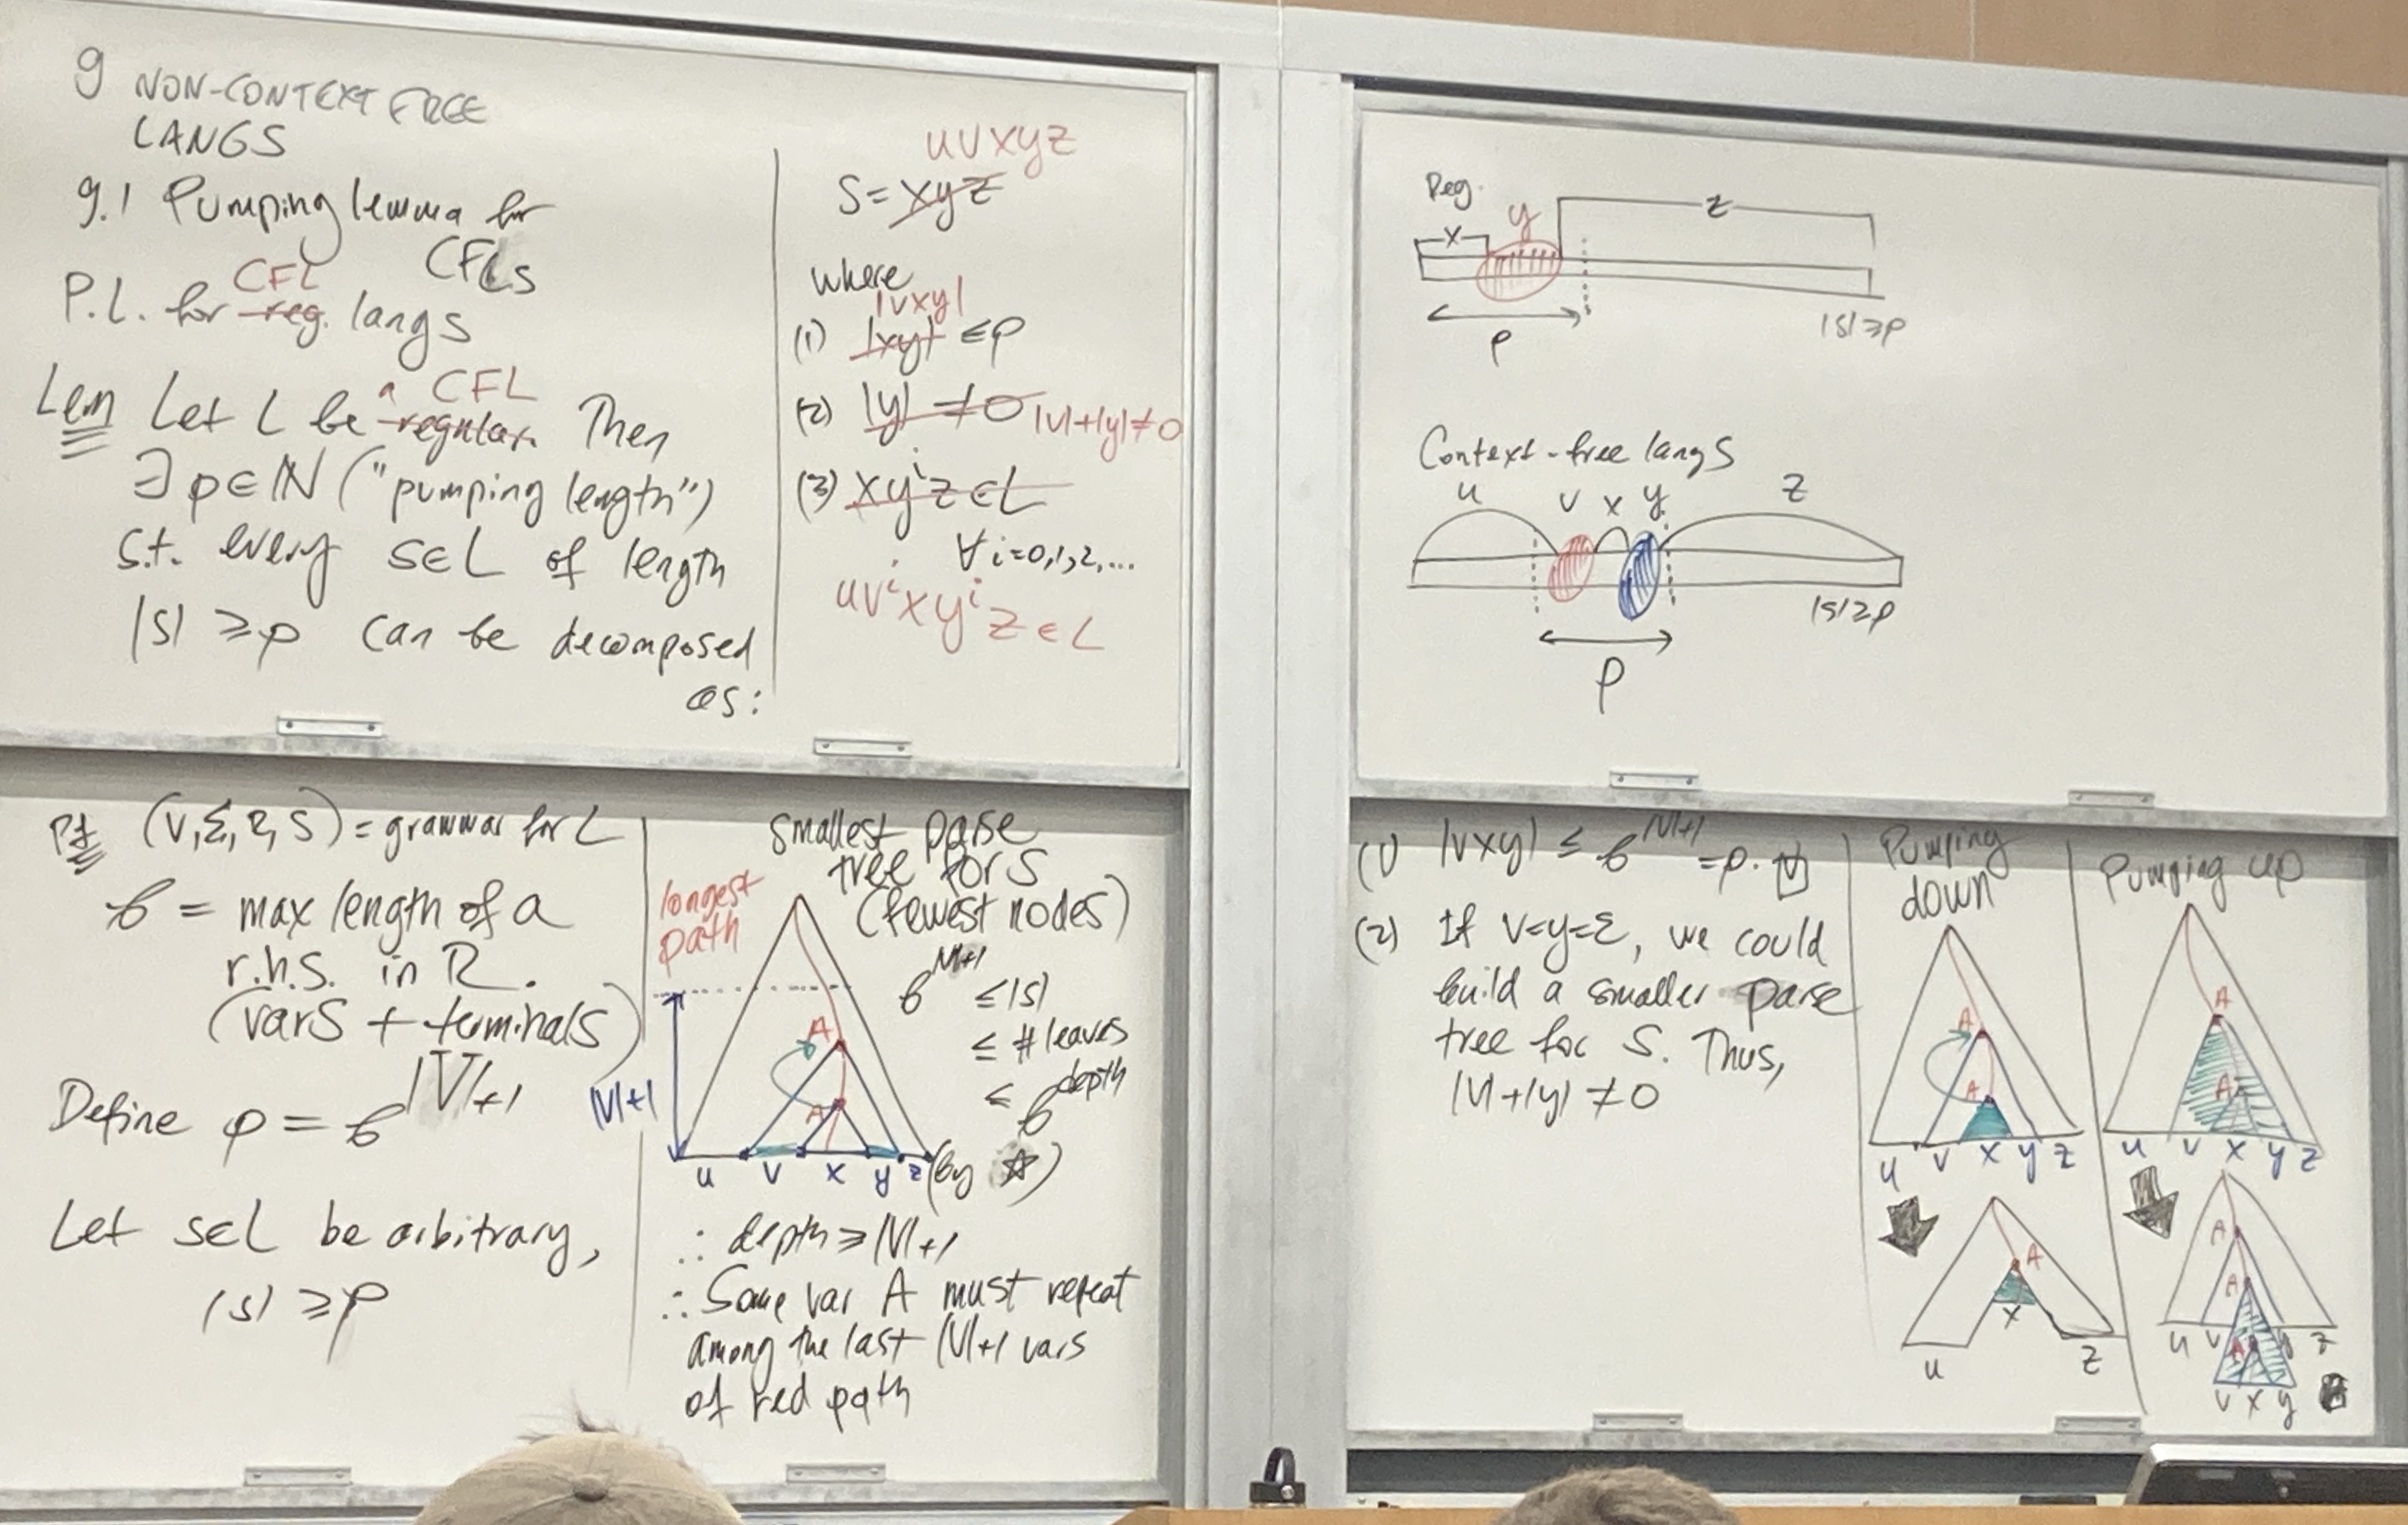 9 NON-CONTEXT FREE
LANGS
9.1 Pumping lemma for
CFLs
CFL
P.L. for reg. langs
a CFL
Lem Let L be regular. Then
∃ p∈ℕ ("pumping length")
s.t. every s∈L of length
|s| ≥p can be decomposed
as:
uvxyz
S = xyz
where
|vxy|
(1) |xy| ≤p
(2) |y| ≠0 |v|+|y|≠0
(3) xyⁱz ∈L
∀ i=0,1,2,...
uvⁱxyⁱz ∈ L
Reg.
x y z
p
|s|≥p
Context-free langs
u v x y z
|s|≥p
p
Pf (V,Σ,R,S) = grammar for L
b = max length of a
r.h.s. in R.
(vars + terminals)
Define p = b^|V|+1
Let s∈L be arbitrary,
|s| ≥p
smallest parse
tree for s
(fewest nodes)
longest
path
b^|V|+1 ≤|s|
≤ # leaves
≤ b^depth
(by ☆)
A
A
|V|+1
u v x y z
∴ depth ≥ |V|+1
∴ Some var A must repeat
among the last |V|+1 vars
of red path
(1) |vxy| ≤ b^|V|+1 =p. ☑
(2) If v=y=ε, we could
build a smaller parse
tree for s. Thus,
|v|+|y| ≠0
Pumping
down
A
A
u v x y z
A
x
u z
Pumping up
A
A
u v x y z
A
A
u v y z
A
v x y